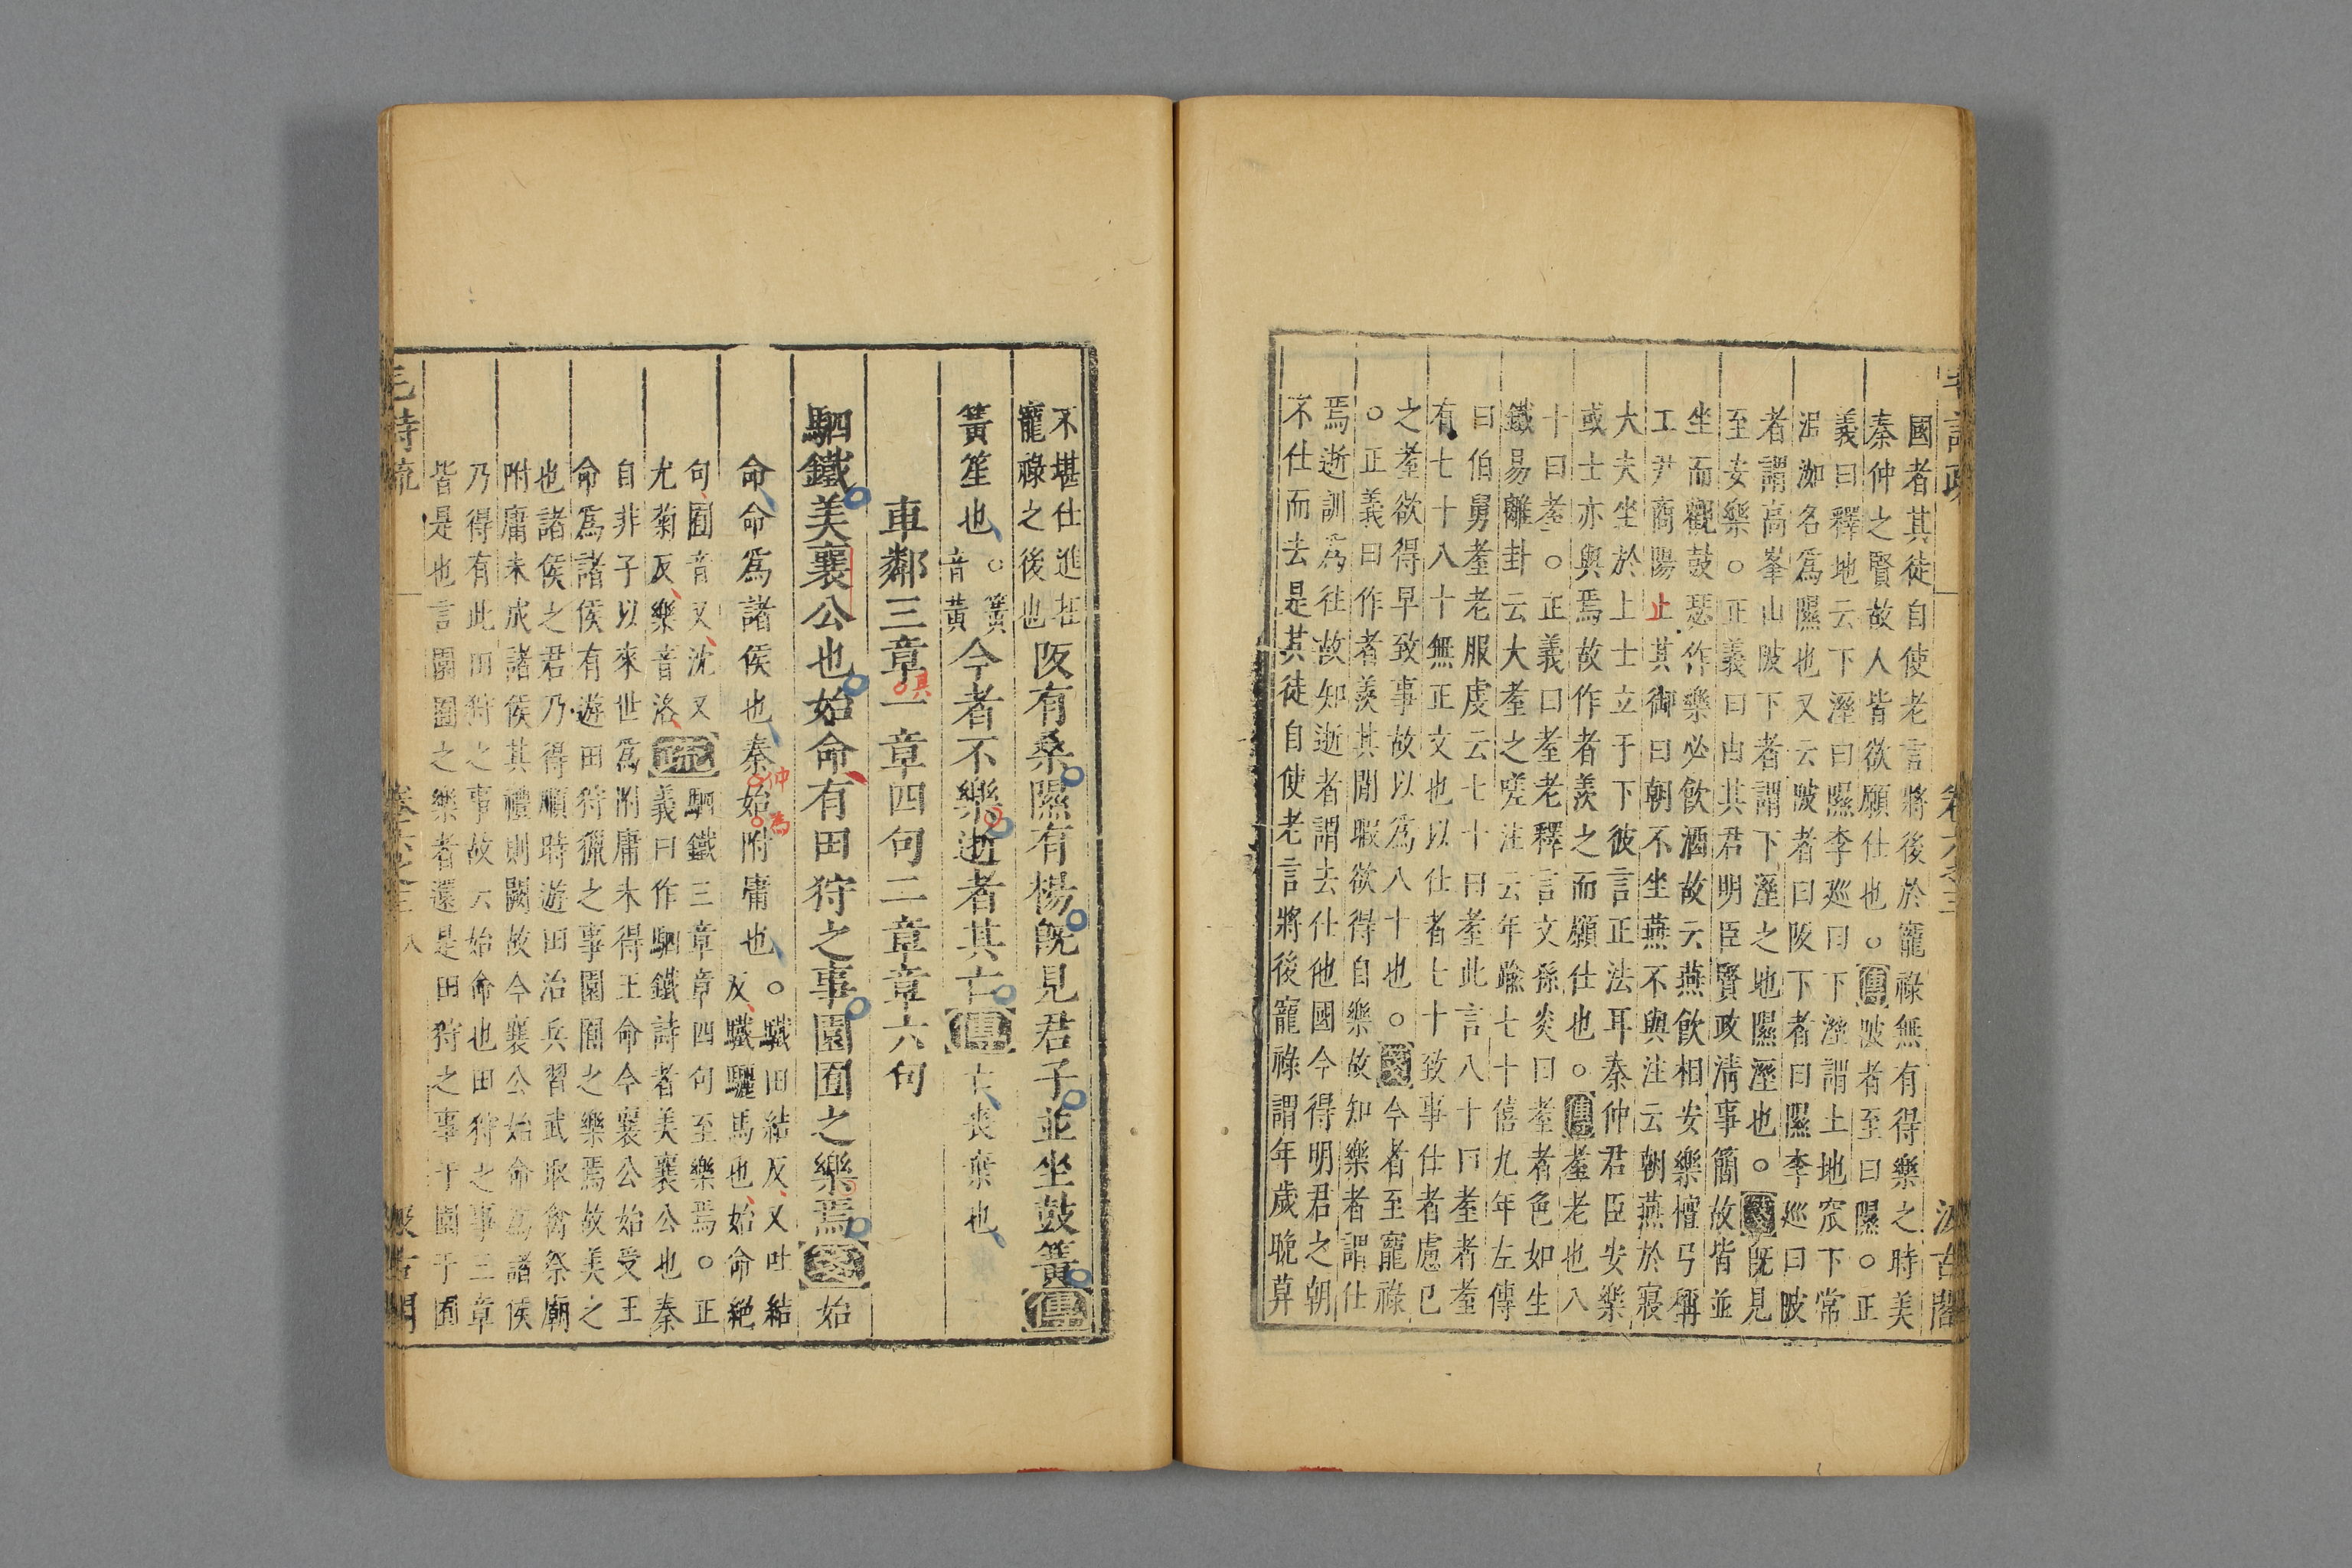 國者其徒自使老言將後於寵祿無有得樂之時美
秦仲之賢故人皆欲願仕也○傳陂者至曰隰○正
義曰釋地云下溼曰隰李巡曰下溼謂上地窊下常
沮洳名爲隰也又云陂者曰阪下者曰隰李巡曰陂
者謂高峯山陂下者謂下溼之地隰溼也○箋既見
至安樂○正義曰由其君明臣賢政清事簡故皆並
坐而觀鼓瑟作樂必飲酒故云燕飲相安樂檀弓稱
工尹商陽止其御曰朝不坐燕不與注云朝燕於寢
大夫坐於上士立于下彼言正法耳秦仲君臣安樂
或士亦與焉故作者羨之而願仕也○傳耋老也八
十曰耋○正義曰耋老釋言文孫炎曰耋者色如生
鐵易離卦云大耋之嗟注云年踰七十僖九年左傳
曰伯舅耋老服虔云七十曰耋此言八十曰耋者耋
有七十八十無正文也以仕者七十致事仕者慮已
之耋欲得早致事故以爲八十也○箋今者至寵祿
○正義曰作者羨其閒暇欲得自樂故知樂者謂仕
焉逝訓爲往故知逝者謂去仕他國今得明君之朝
不仕而去是其徒自使老言將後寵祿謂年歲晚莫
不堪仕進在
寵祿之後也
阪有桑隰有楊既見君子並坐鼓簧傳
簧笙也○簧
音黃
今者不樂逝者其亡傳亡喪棄也
車鄰三章一章四句二章章六句
俱
駟鐵美襄公也始命有田狩之事園囿之樂焉箋始
命命爲諸侯也秦始附庸也○驖田結反又吐結
仲
為
反驖驪馬也始命絕
句囿音又沈又
尤菊反樂音洛疏駟鐵三章章四句至樂焉○正
義曰作駟鐵詩者美襄公也秦
自非子以來世爲附庸未得王命今襄公始受王
命爲諸侯有遊田狩獵之事園囿之樂焉故美之
也諸侯之君乃得順時遊田治兵習武取禽祭廟
附庸未成諸侯其禮則闕故今襄公始命爲諸侯
乃得有此田狩之事故云始命也田狩之事三章
皆是也言園囿之樂者還是田狩之事于園于囿